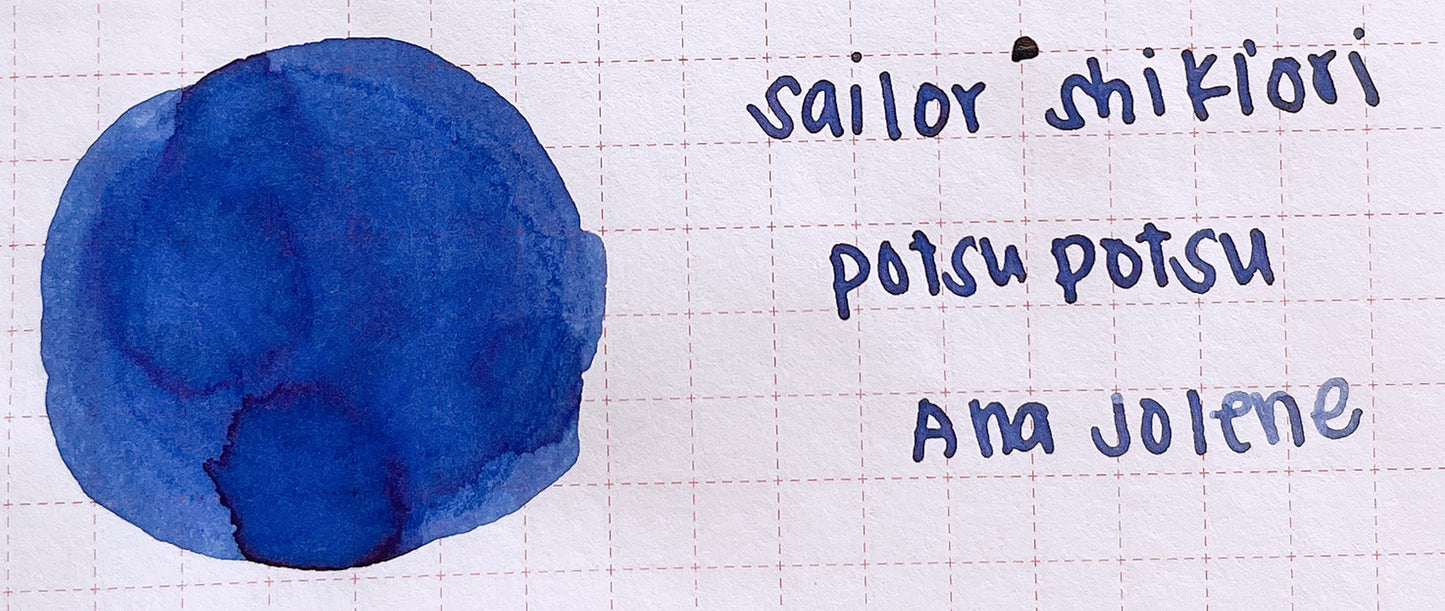 sailor shikiori
potsu potsu
Ana Jolene